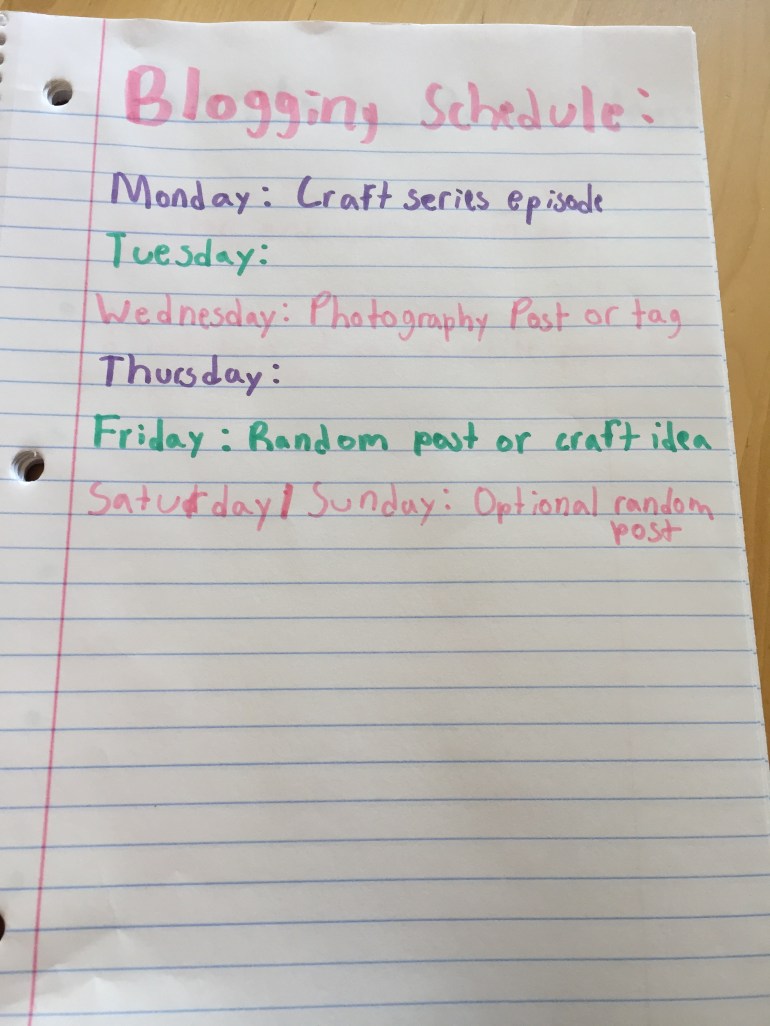 Blogging Schedule:
Monday: Craft series episode
Tuesday:
Wednesday: Photography Post or tag
Thursday:
Friday: Random post or craft idea
Saturday/Sunday: Optional random
post